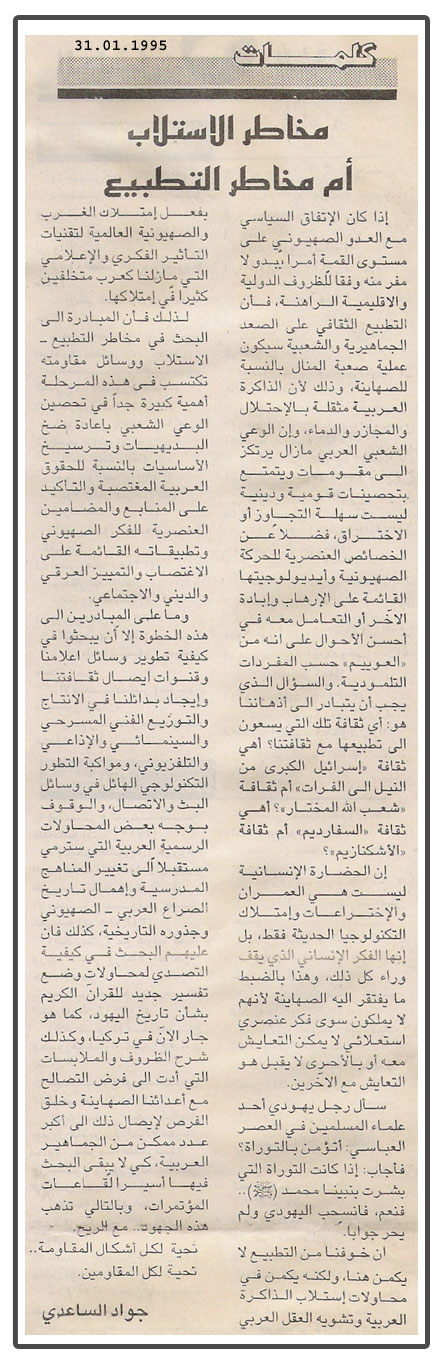 31.01.1995
كلمـــات
مخاطر الاستلاب
أم مخاطر التطبيع
إذا كان الإتفاق السياسي
مع العدو الصهيوني على
مستوى القمة أمراً يبدو لا
مفر منه وفقاً للظروف الدولية
والاقليمية الراهنة، فأن
التطبيع الثقافي على الصعد
الجماهيرية والشعبية سيكون
عملية صعبة المنال بالنسبة
للصهاينة، وذلك لأن الذاكرة
العربية مثقلة بالإحتلال
والمجازر والدماء، وإن الوعي
الشعبي العربي مازال يرتكز
الى مقومات ويتمتع
بتحصينات قومية ودينية
ليست سهلة التجاوز أو
الاختراق، فضلاً عن
الخصائص العنصرية للحركة
الصهيونية وأيديولوجيتها
القائمة على الإرهاب وإبادة
الآخر أو التعامل معه في
أحسن الأحوال على انه من
«الغوييم» حسب المفردات
التلمودية. والسؤال الذي
يجب أن يتبادر الى أذهاننا
هو: أي ثقافة تلك التي يسعون
الى تطبيعها مع ثقافتنا؟ أهي
ثقافة «إسرائيل الكبرى من
النيل الى الفرات» أم ثقافة
«شعب الله المختار»؟ أهي
ثقافة «السفارديم» أم ثقافة
«الأشكنازيم»؟
إن الحضارة الإنسانية
ليست هي العمران
والإختراعات وإمتلاك
التكنولوجيا الحديثة فقط، بل
إنها الفكر الإنساني الذي يقف
وراء كل ذلك، وهذا بالضبط
ما يفتقر اليه الصهاينة لأنهم
لا يملكون سوى فكر عنصري
استعلائي لا يمكن التعايش
معه أو بالأحرى لا يقبل هو
التعايش مع الآخرين.
سأل رجل يهودي أحد
علماء المسلمين في العصر
العباسي: أتؤمن بالتوراة؟
فأجاب: إذا كانت التوراة التي
بشرت بنبينا محمد (ﷺ)..
فنعم، فأنسحب اليهودي ولم
يحر جواباً.
ان خوفنا من التطبيع لا
يكمن هنا، ولكنه يكمن في
محاولات إستلاب الذاكرة
العربية وتشويه العقل العربي
بفعل إمتلاك الغرب
والصهيونية العالمية لتقنيات
التأثير الفكري والإعلامي
التي مازلنا كعرب متخلفين
كثيراً في إمتلاكها.
لذلك فأن المبادرة الى
البحث في مخاطر التطبيع ـ
الاستلاب ووسائل مقاومته
تكتسب في هذه المرحلة
أهمية كبيرة جداً في تحصين
الوعي الشعبي باعادة ضخ
البديهيات وترسيخ
الأساسيات بالنسبة للحقوق
العربية المغتصبة والتأكيد
على المنابع والمضامين
العنصرية للفكر الصهيوني
وتطبيقاته القائمة على
الاغتصاب والتمييز العرقي
والديني والاجتماعي.
وما على المبادرين الى
هذه الخطوة إلا أن يبحثوا في
كيفية تطوير وسائل اعلامنا
وقنوات ايصال ثقافتنا
وإيجاد بدائلنا في الانتاج
والتوزيع الفني المسرحي
والسينمائي والإذاعي
والتلفزيوني، ومواكبة التطور
التكنولوجي الهائل في وسائل
البث والاتصال، والوقوف
بوجه بعض المحاولات
الرسمية العربية التي سترمي
مستقبلاً الى تغيير المناهج
المدرسية وإهمال تاريخ
الصراع العربي ـ الصهيوني
وجذوره التاريخية، كذلك فان
عليهم البحث في كيفية
التصدي لمحاولات وضع
تفسير جديد للقرآن الكريم
بشأن تاريخ اليهود، كما هو
جار الآن في تركيا، وكذلك
شرح الظروف والملابسات
التي أدت الى فرض التصالح
مع أعدائنا الصهاينة وخلق
الفرص لإيصال ذلك الى أكبر
عدد ممكن من الجماهير
العربية، كي لا يبقى البحث
فيها أسيراً لقاعات
المؤتمرات، وبالتالي تذهب
هذه الجهود.. مع الريح.
تحية لكل أشكال المقاومة..
تحية لكل المقاومين.
جواد الساعدي